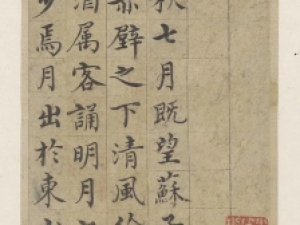 秋七月既望蘇子
赤壁之下清風徐
酒属客誦明月
少焉月出於東